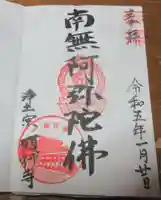 奉拝
令和五年一月廿日
南無阿弥陀佛
浄土宗